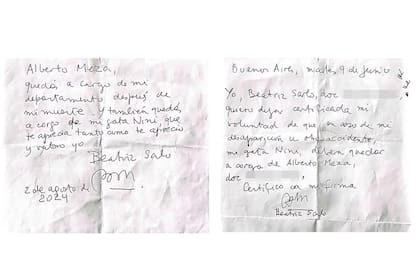 Alberto Meza,
quedá a cargo de mi
departamento después de
mi muerte y también quedá
a cargo de mi gata Niní, que
te aprecia tanto como te aprecio
y valoro yo.
Beatriz Sarlo
2 de agosto de
2024
Buenos Aires, martes 9 de junio
Yo, Beatriz Sarlo, doc
quiero dejar certificada mi
voluntad de que en caso de mi
desaparición u otro accidente,
mi gata Niní, deberá quedar
a cargo de Alberto Meza,
doc
Certifico con mi firma
Beatriz Sarlo